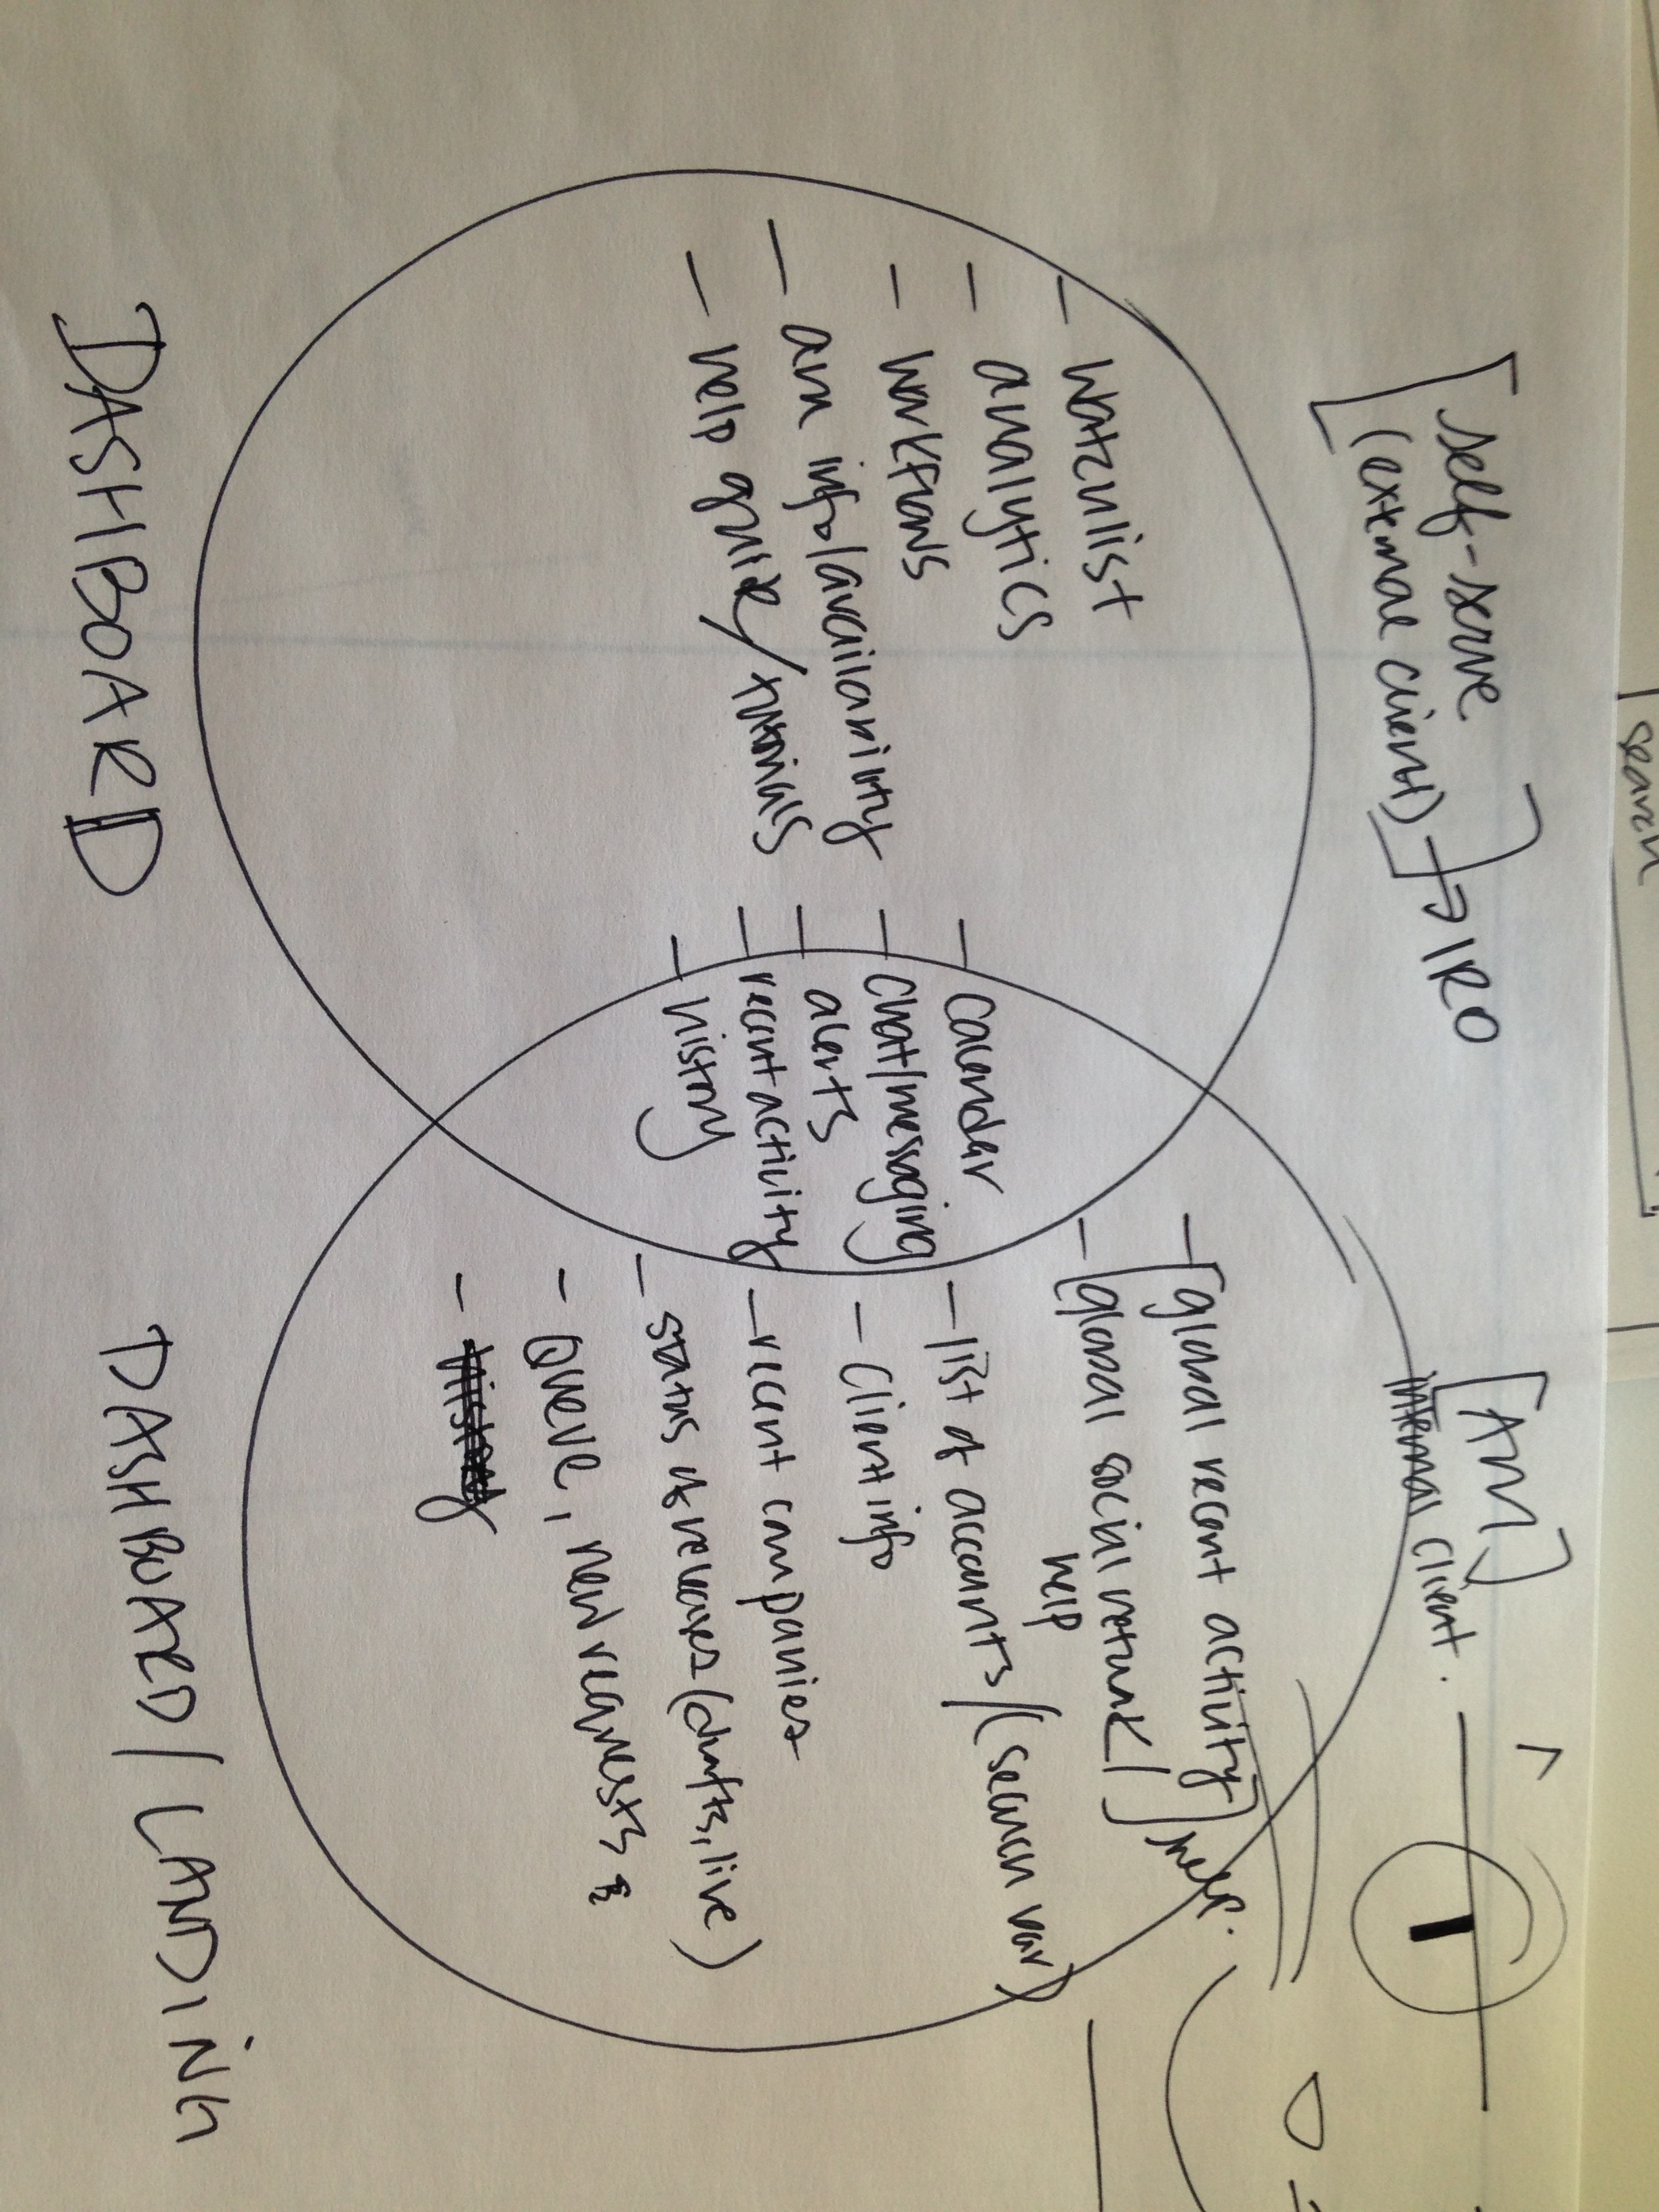 search
[self-serve
(external client)] → IRO
[AM]
internal client.
- watchlist
- analytics
- workflows
- am info/availability
- help guide/tutorials
- calendar
- chat/messaging
- alerts
- recent activity
- history
- [global recent activity]
- [global social network/] help.
help
- list of accounts/(search bar)
- client info
- recent companies
- status of releases (drafts, live)
- Queue, new requests &
- history
DASHBOARD
DASHBOARD/LANDING